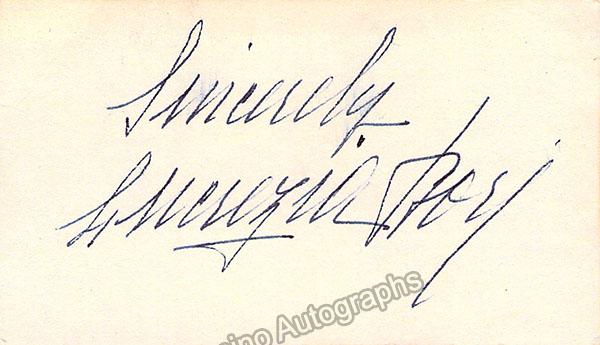 Sincerely
Lucrezia Bori
ino Autographs